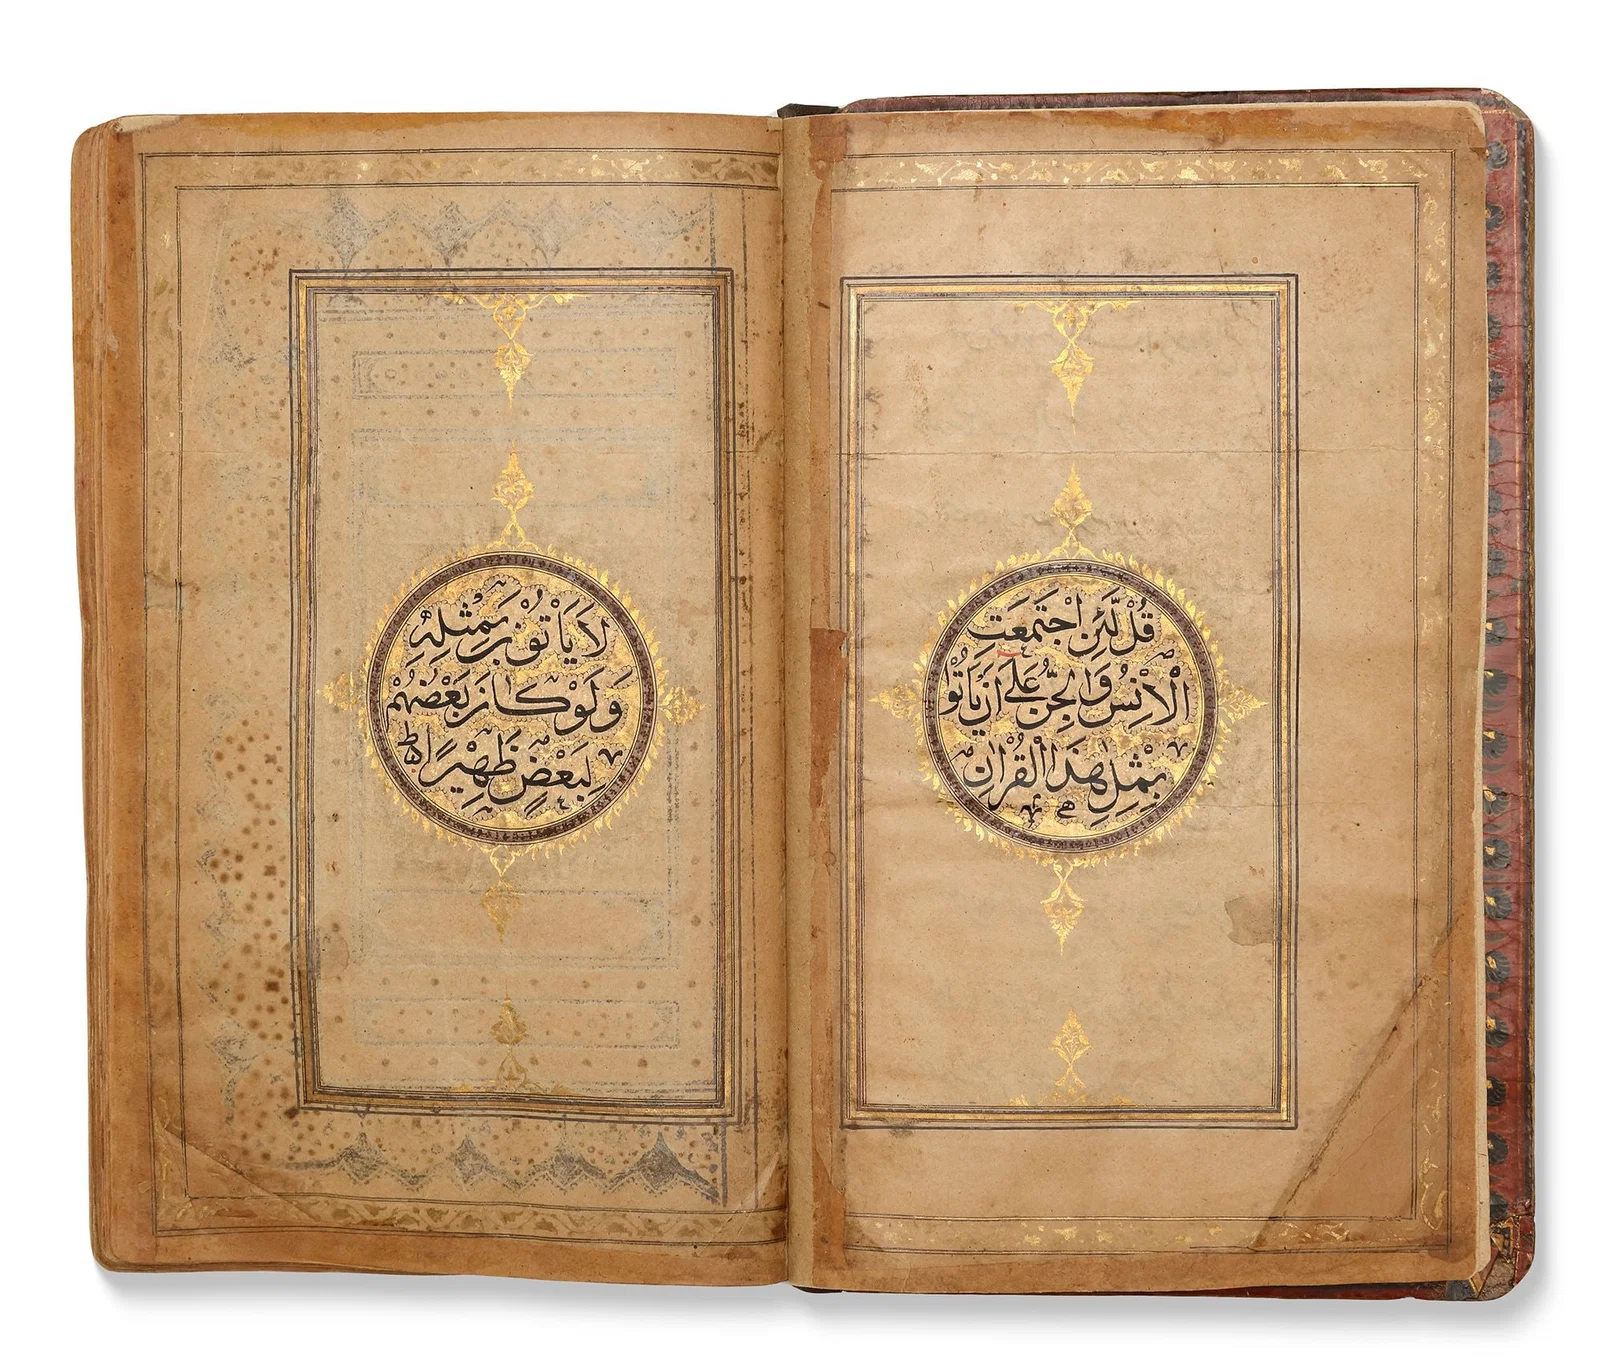 قُل لَّئِنِ اجْتَمَعَتِ
الْاِنْسُ وَالْجِنُّ عَلَى اَنْ يَاْتُوا
بِمِثْلِ هٰذَا الْقُرْاٰنِ
لَا يَاْتُوْنَ بِمِثْلِهِ
وَلَوْ كَانَ بَعْضُهُمْ
لِبَعْضٍ ظَهِيْرًا